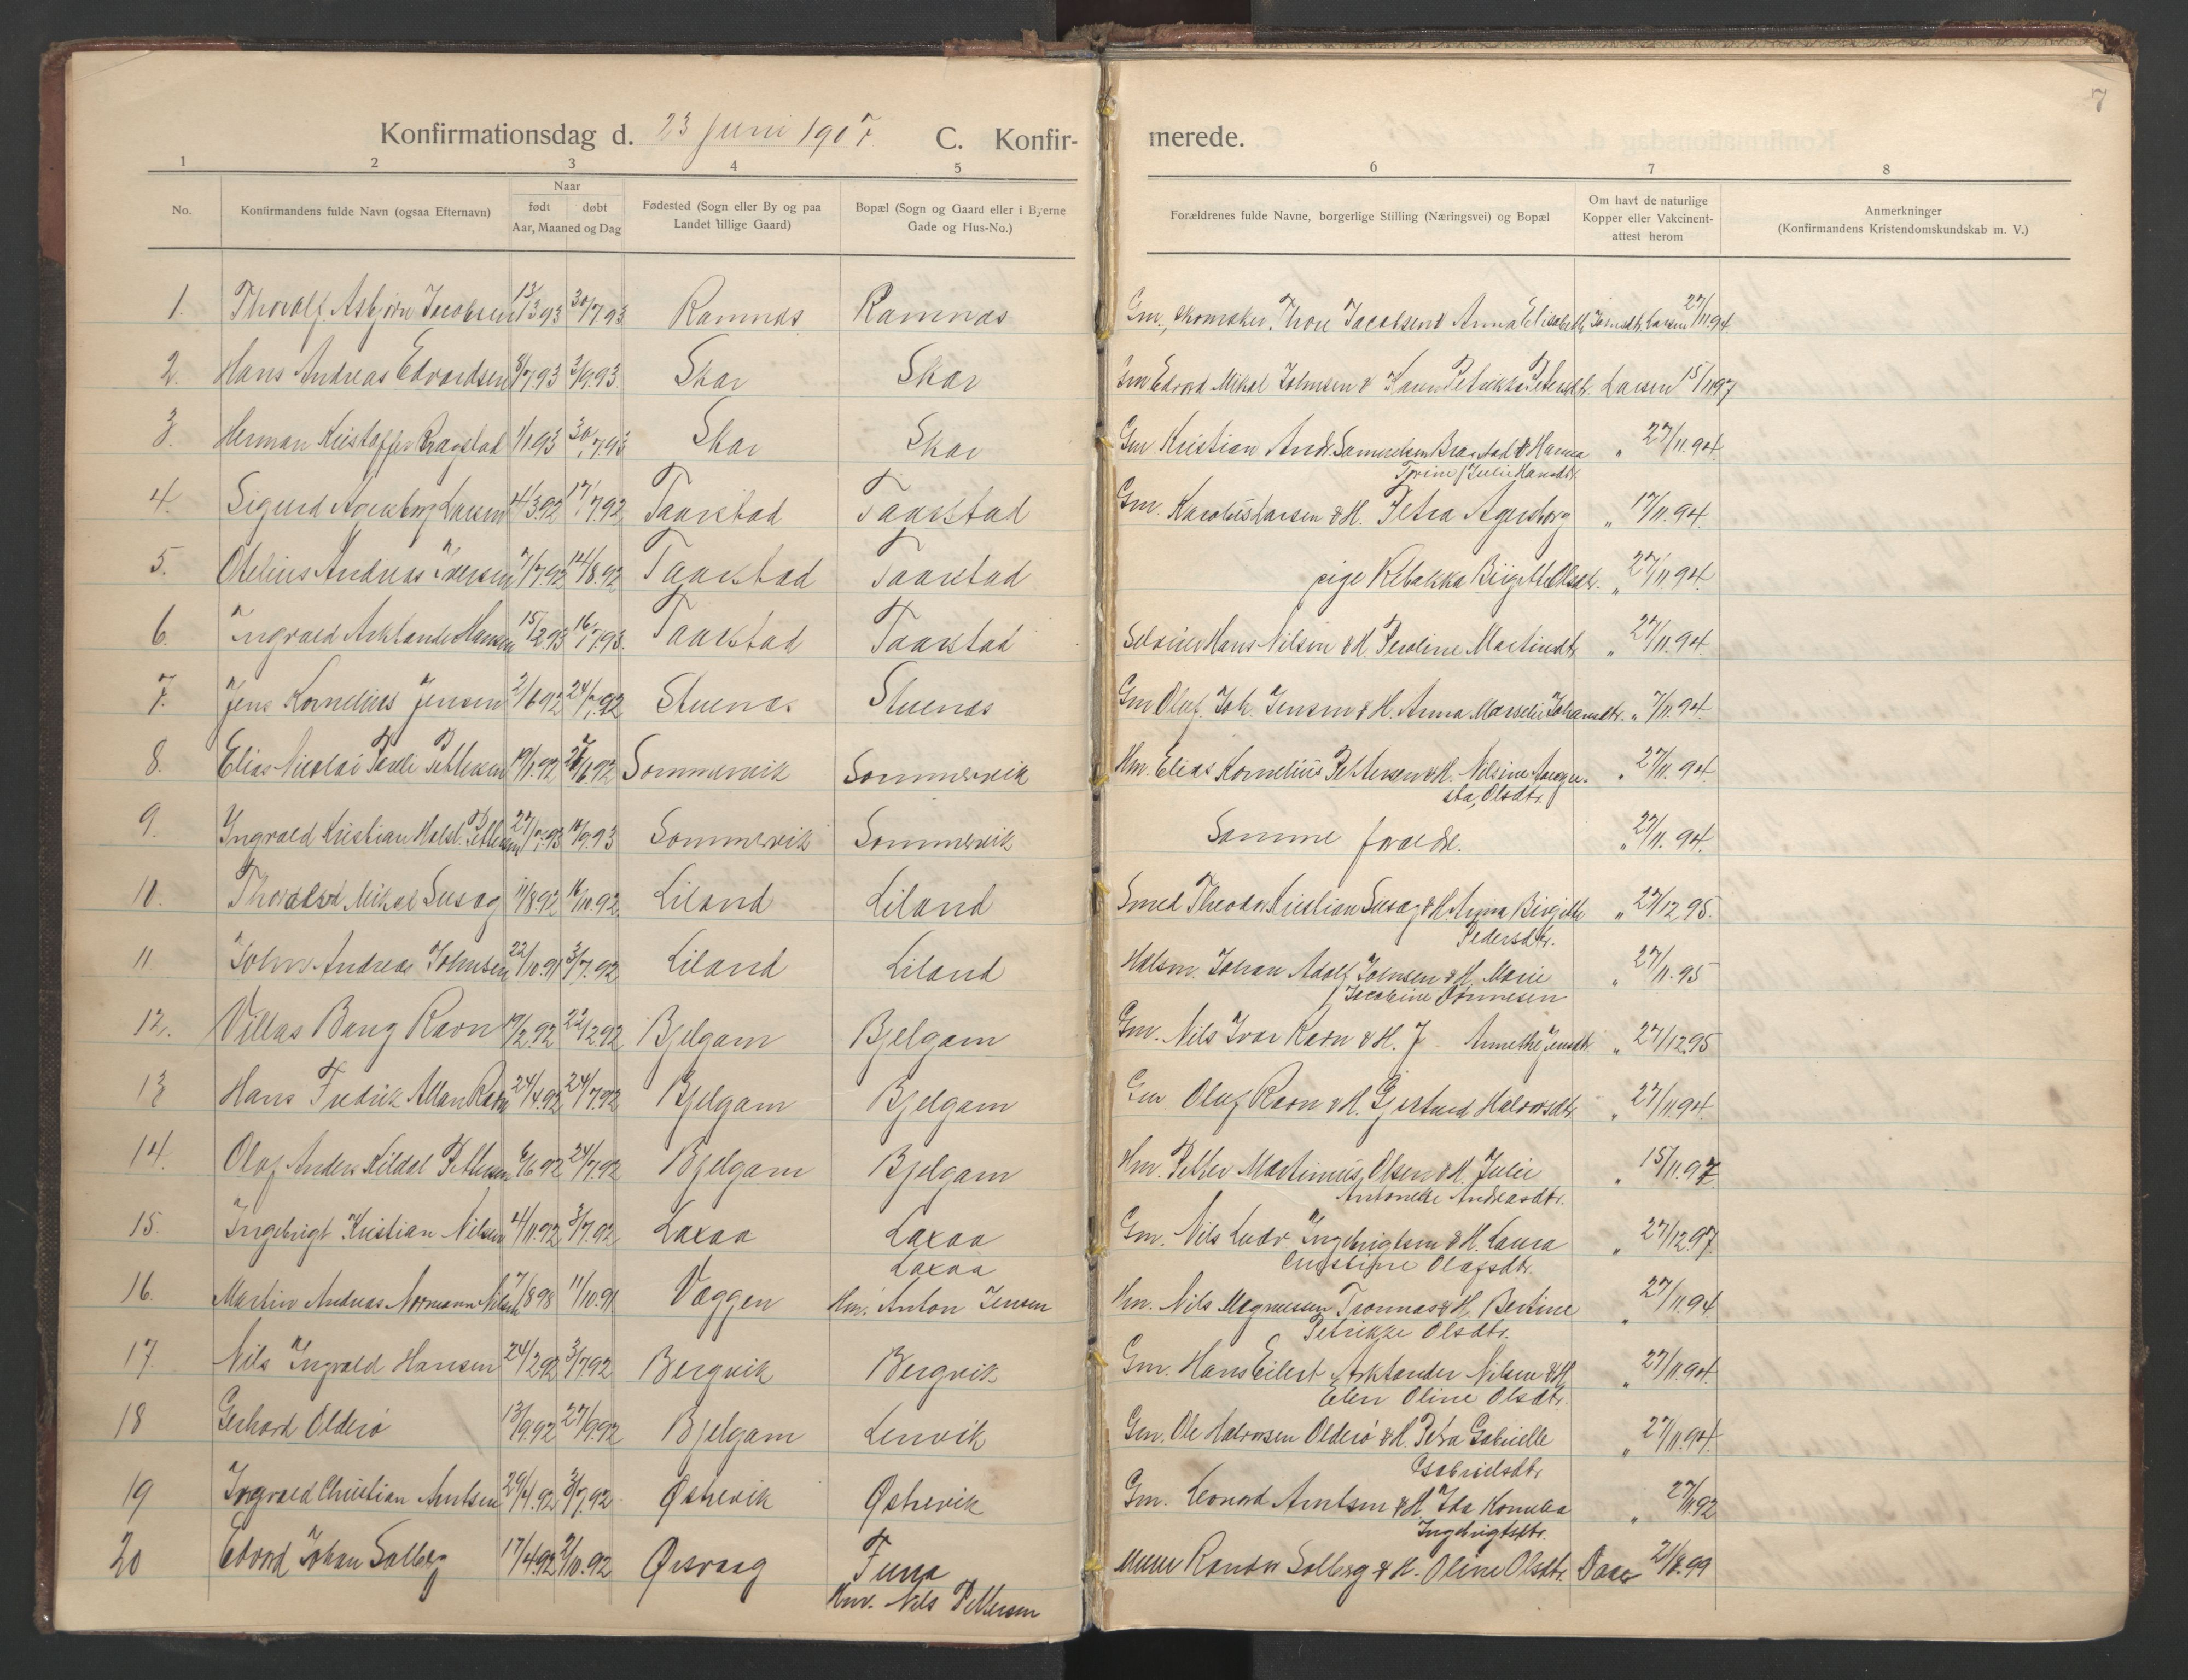 7
Konfirmationsdag d. 23 Juni 1907. C. Konfir- merede.
1 2 3 4 5 6 7 8
No. Konfirmandens fulde Navn (ogsaa Efternavn) Naar født døbt Aar, Maaned og Dag Fødested (Sogn eller By og paa Landet tillige Gaard) Bopæl (Sogn og Gaard eller i Byerne Gade og Hus-No.) Forældrenes fulde Navne, borgerlige Stilling (Næringsvei) og Bopæl Om havt de naturlige Kopper eller Vakcinent- attest herom Anmerkninger (Konfirmandens Kristendomskundskab m. V.)
1. Thoralf Asbjørn Jacobsen 13/3 93 30/7 93 Ramnas Ramnas Gm., skomaker Thore Jacobsen & Anna Elisabeth Larsen 27/11 94
2. Hans Andreas Edvardsen 8/7.93 3/9.93 Skar Skar Gm Edvard Mikal Johnsen & Karen Petrikka Petersdtr. Larsen 15/11 97
3. Herman Kristoffer Bragstad 1/1 93 30/7 93 Skar Skar Gm. Kristian Andr. Samuelsen Bragstad & Hanna „ 27/11.94.
Julie Hansdtr.
4. Sigurd Agersborg Larsen 4/3.92 17/7.92 Taarstad Taarstad Gm. Karolius Larsen & H. Petra Agersborg „ 17/11.94.
5. Otelius Andreas Iversen 7/7.92 14/8.92 Taarstad Taarstad pige Rebakka Birgitte Olsdtr. „ 27/11 94.
6. Ingvald Arktander Hansen 15/2.93 16/7.93. Taarstad Taarstad Hans Nilsen & H. Peroline Martinsdtr. „ 27/11.94.
7. Jens Kornelius Jensen 2/6 92 24/7.92 Stuenas Stuenas Gm Oluf Joh. Jensen & H. Anna Marselie Johansdtr. „ 7/11.94.
8. Elias Nicolai Pareli Pettersen 19/1.92 26/6 92 Sommervik Sommervik Hm. Elias Kornelius Pettersen & H. Nilsine Augu- „ 27/11.94.
sta, Olsdtr.
9. Ingvald Kristian Holst Pettersen 27/7.93 10/9.93 Sommervik Sommervik Samme foræld. „ 27/11.94.
10. Thoralv Mikal Susag 11/8.92 16/10.92. Liland Liland Smed Theodor Kristian Susag & H. Anna Birgitte „ 27/12 95.
Pedersdtr.
11 Johan Andreas Johnsen 22/10.91 3/7.92 Liland Liland Johan Adolf Johnsen & H. Marie „ 27/11.95
Jacobine Dønnesen
12. Villas Bang Ravn 17/2.92 22/2 92 Bjelgam Bjelgam Gm. Nils Ivar Ravn & H. J. Annethe Jensdtr. „ 27/12 95
13 Hans Fredrik Allan Ravn 24/4.92 24/7.92 Bjelgam Bjelgam Gm Oluf Ravn & H. Gjertrud Halvorsdtr. „ 27/11.94
14. Olaf Anders Kildal Pettersen 6/6 92 24/7.92 Bjelgam Bjelgam Hm. Petter Martinius Olsen & H. Julie „ 15/11.97.
Antonette Andreasdtr.
15. Ingebrigt Kristian Nilsen 4/11.92 3/7.92 Laxaa Laxaa Gm. Nils Ludv Ingebrigtsen & H. Laura „ 27/12.97.
Christine Olafsdtr.
Laxaa
16. Martin Andreas Normann Nilsen 7/8 98 11/10.91 Vaggen Hm. Anton Jensen Hm. Nils Magnussen Tronnas & H. Bertine „ 27/11.94
Petrikke Olsdtr.
17. Nils Ingvald Hansen 24/2 92 3/7.92 Bergvik Bergvik Gm. Hans Eilert Arktander Nilsen & H. „ 27/11.94.
Elen Oline Olsdtr.
18 Gerhard Olderø 13/9.92 27/9.92 Bjelgam Lenvik Gm. Ole Halvorsen Olderø & H. Petra Gabrielle „ 27/11.94.
Gabrielsdtr
19 Ingvald Christian Arntsen 29/4.92 3/7.92. Østervik Østervik Gm. Leonard Arntsen & H. Ida Kornelia „ 27/11 92
Ingebrigtsdtr.
20 Edvard Johan Solberg 17/4.92 2/10.92 Ørsvaag Tuna Murer Randor Solberg & H. Oline Olsdtr. 21/8.99
Hm. Nils Pettersen